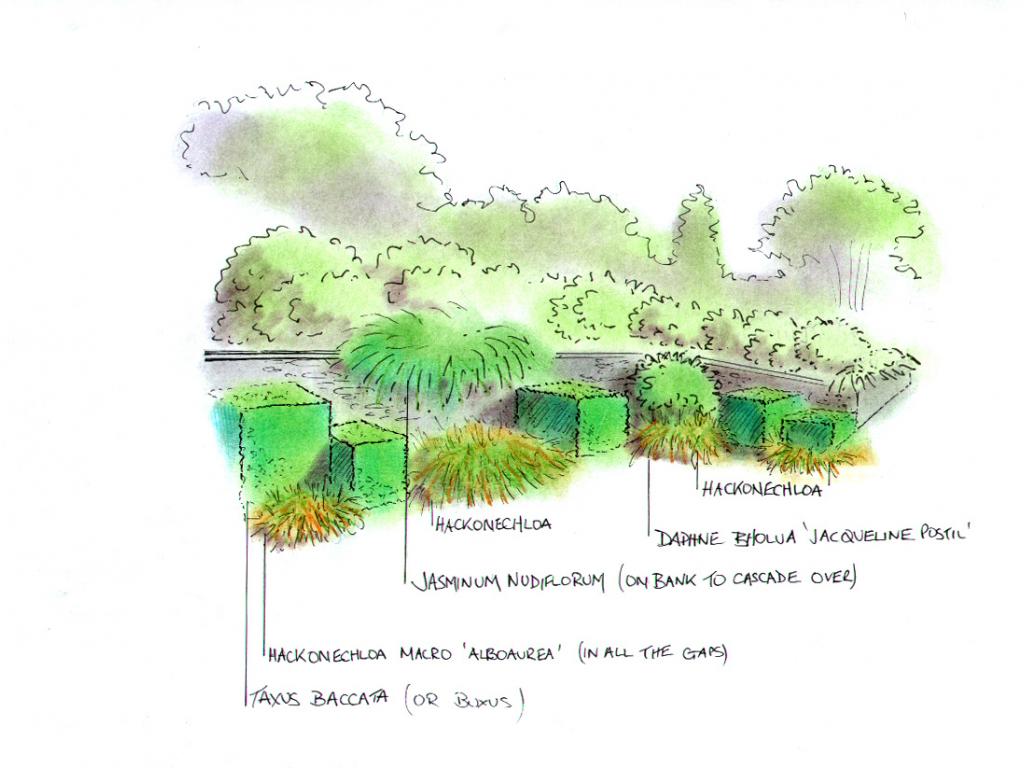 HACKONECHLOA
HACKONECHLOA
DAPHNE BHOLUA 'JACQUELINE POSTIL'
JASMINUM NUDIFLORUM (ON BANK TO CASCADE OVER)
HACKONECHLOA MACRO 'ALBOAUREA' (IN ALL THE GAPS)
TAXUS BACCATA (OR BUXUS)